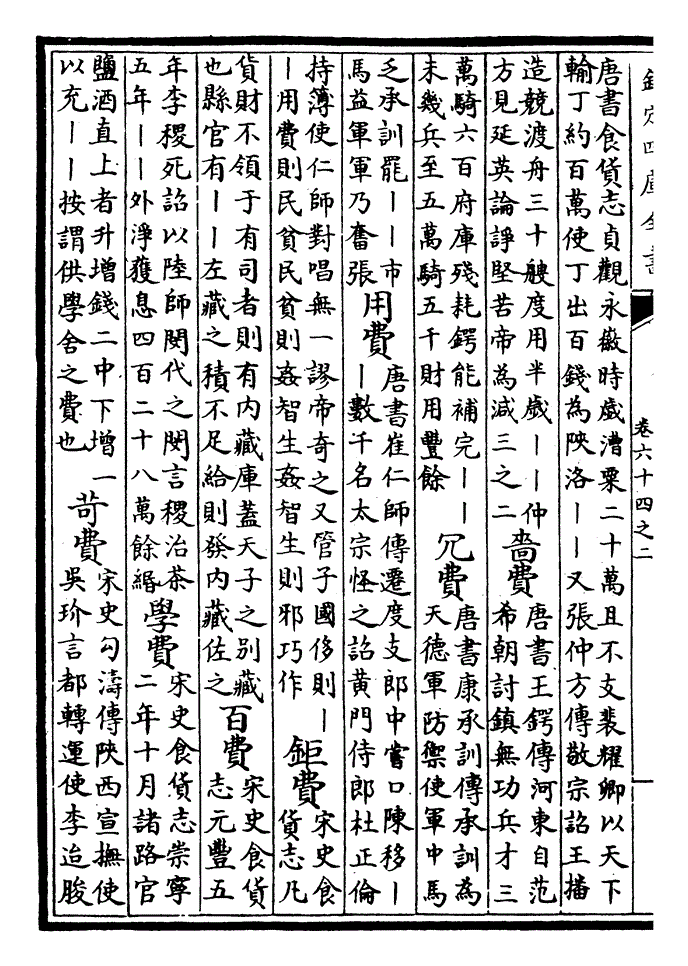 欽定四庫全書
卷六十四之二
唐書食貨志貞觀永徽時歲漕粟二十萬且不支裴耀卿以天下
輸丁約百萬使丁出百錢為陝洛｜｜又張仲方傳敬宗詔王播
造競渡舟三十艘度用半歲｜｜仲
方見延英論諍堅苦帝為減三之二
嗇費
唐書王鍔傳河東自范
希朝討鎮無功兵才三
萬騎六百府庫殘耗鍔能補完｜｜
未幾兵至五萬騎五千財用豐餘
冗費
唐書康承訓傳承訓為
天德軍防禦使軍中馬
乏承訓罷｜｜市
馬益軍軍乃奮張
用費
唐書崔仁師傳遷度支郎中嘗口陳移｜
｜數千名太宗怪之詔黃門侍郎杜正倫
持簿使仁師對唱無一謬帝奇之又管子國侈則｜
｜用費則民貧民貧則姦智生姦智生則邪巧作
鉅費
宋史食
貨志凡
貨財不領于有司者則有内藏庫蓋天子之别藏
也縣官有｜｜左藏之積不足給則發内藏佐之
百費
宋史食貨
志元豐五
年李稷死詔以陸師閔代之閔言稷治茶
五年｜｜外淨獲息四百二十八萬餘緡
學費
宋史食貨志崇寧
二年十月諸路官
鹽酒直上者升增錢二中下增一
以充｜｜按謂供學舍之費也
苛費
宋史勾濤傳陝西宣撫使
吳玠言都轉運使李迨朘